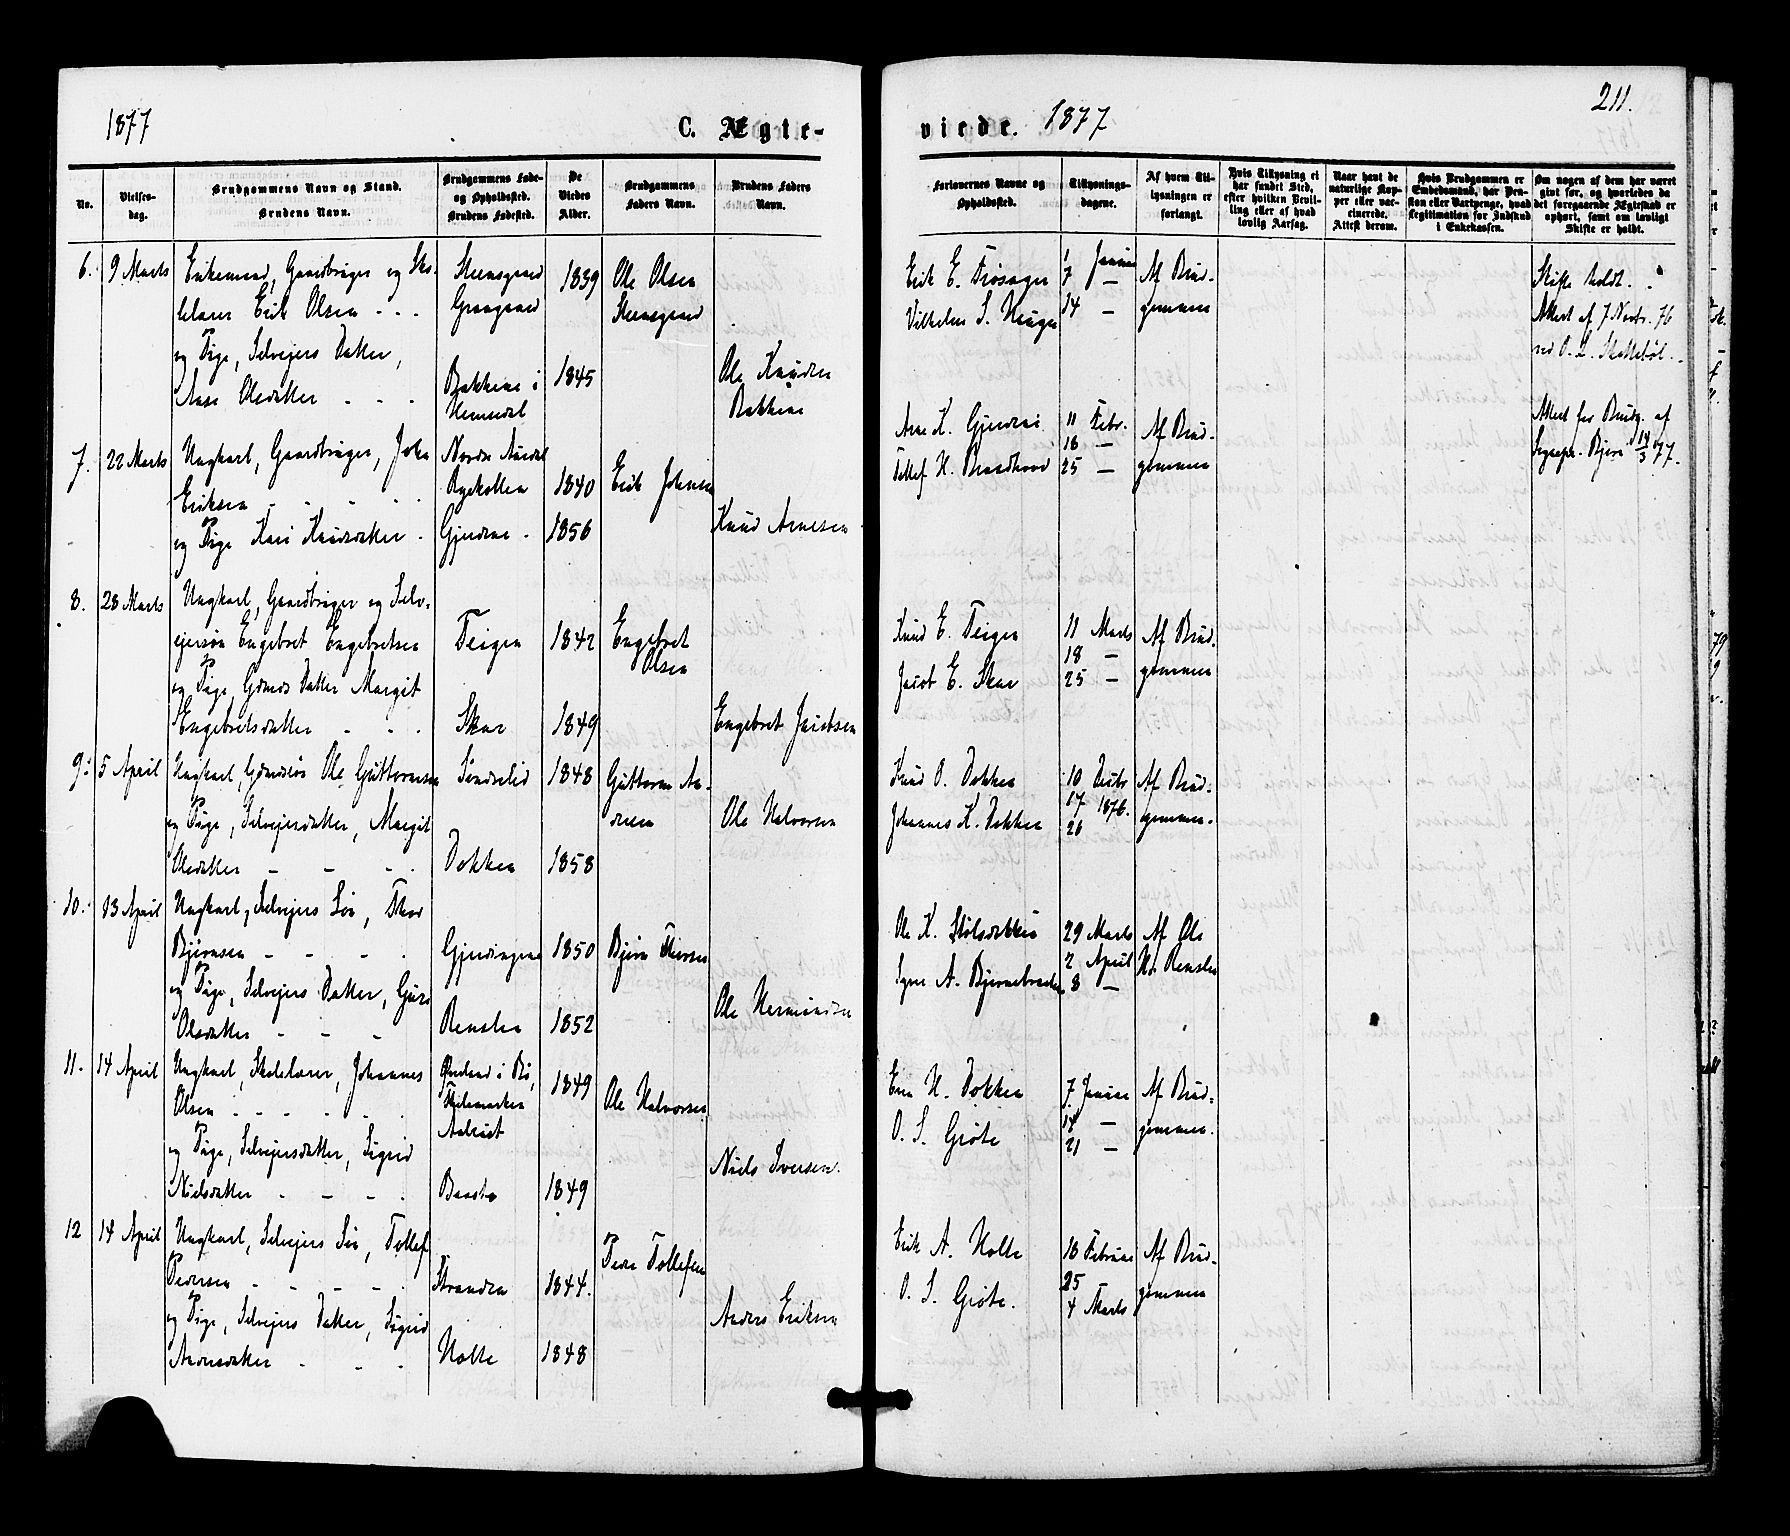 1877
C. Ægte-
viede. 1877
211.
No.
Vielses-
dag.
Brudgommens Navn og Stand.
Brudens Navn.
Brudgommens Føde-
og Opholdssted.
Brudens Fødested.
De
Viedes
Alder.
Brudgommens
Faders Navn.
Brudens Faders
Navn.
Forlovernes Navne og
Opholdssted.
Tillysnings-
dagene.
Af hvem Til-
lysningen er
forlangt.
Hvis Tillysning ei
har fundet Sted,
efter hvilken Bevil-
ling eller af hvad
lovlig Aarsag.
Naar havt de
naturlige Kop-
per eller vac-
cinerede.
Attest derom.
Hvis Brudgommen er
Embedsmand, har Pen-
sion eller Vartpenge, hvad
Legitimation for Indskud
i Enkekassen.
Om nogen af dem har været
givt før, og hvorledes da
det foregaaende Ægteskab er
ophørt, samt om lovligt
Skifte er holdt.
6. 9 Marts Enkemand, Gaardbruger og Sko-
lelærer Erik Olsen - - -
og Pige, Selvejers Datter,
Aase Olsdatter - - -
Steensgaard
Grøngaard
Bakkene i
Hemsedal
1839
1845
Ole Olsen
Steensgaard
Ole Knudsen
Bakkene
Erik E. Trøsager
Vilhelm S. Hauger
1 Januar
7 —
14 —
Af Brud-
gommen
Skifte holdt.
Attest af 7 Novbr. 76
ved O. L. Skattebøl.
7. 22 Marts Ungkarl, Gaardbruger, John
Eriksen - - - -
og Pige Kari Knudsdatter -
Nordre Aurdal
Ryekollen
Gjerdene -
1840
1856
Erik Johnsen
Knud Arnesen
Arne K. Gjerdene
Tollef H. Brandhovd
11 Febr.
18 —
25 —
Af Brud-
gommen
Attest for Brudg. af
Sognepr. Bjerre 14/3 77.
8. 28 Marts Ungkarl, Gaardbruger og Selv-
ejersøn Engebret Engebretsen
og Pige, Gdmds Datter Margit
Engebretsdatter - - -
Teigen
Skar
1842
1849
Engebret
Olsen
Engebret Jacobsen
Knud E. Teigen
Jacob E. Skar
11 Marts
18 —
25 —
Af Brud-
gommen
9. 5 April Ungkarl, Gdmdssøn Ole Guttormsen
og Pige, Selvejersdatter, Margit
Olsdatter - - -
Sundrelid
Dokken
1848
1858
Guttorm An-
dersen
Ole Halvorsen
Knud O. Dokken
Johannes K. Dokken
10 Decbr
17 1876.
26
Af Brud-
gommen.
10. 13 April Ungkarl, Selvejers Søn, Thor
Bjørnsen - - - -
og Pige, Selvejers Datter, Guri
Olsdatter - - -
Gjerdingene
Renslen
1850
1852
Bjørn Thorsen
Ole Hermundsen
Ole K. Stølsdokken
Syver A. Bjørnebraaten
29 Marts
2 April
8 —
Af Ole
Hs. Renslen
11. 14 April Ungkarl, Skolelærer, Johannes
Olsen - - - - -
og Pige, Selvejersdatter, Sigrid
Nielsdatter - - - -
i Bø,
Thelemarken
Aalrust
Baasto
1849
1849
Ole Halvorsen
Niels Iversen.
Even H. Dokken
O. S. Grøte
7. Januar
14 —
21 —
Af Brud-
gommen.
12 14 April Ungkarl, Selvejers Søn, Tollef
Pedersen - - - -
og Pige, Selvejers Datter, Sigrid
Andersdatter - - -
Stranden
Holte
1844.
1848
Peder Tollefsen
Anders Eriksen
Erik A. Holte
O. S. Grøte.
18 Februar
25
4 Marts
Af Brud-
gommen